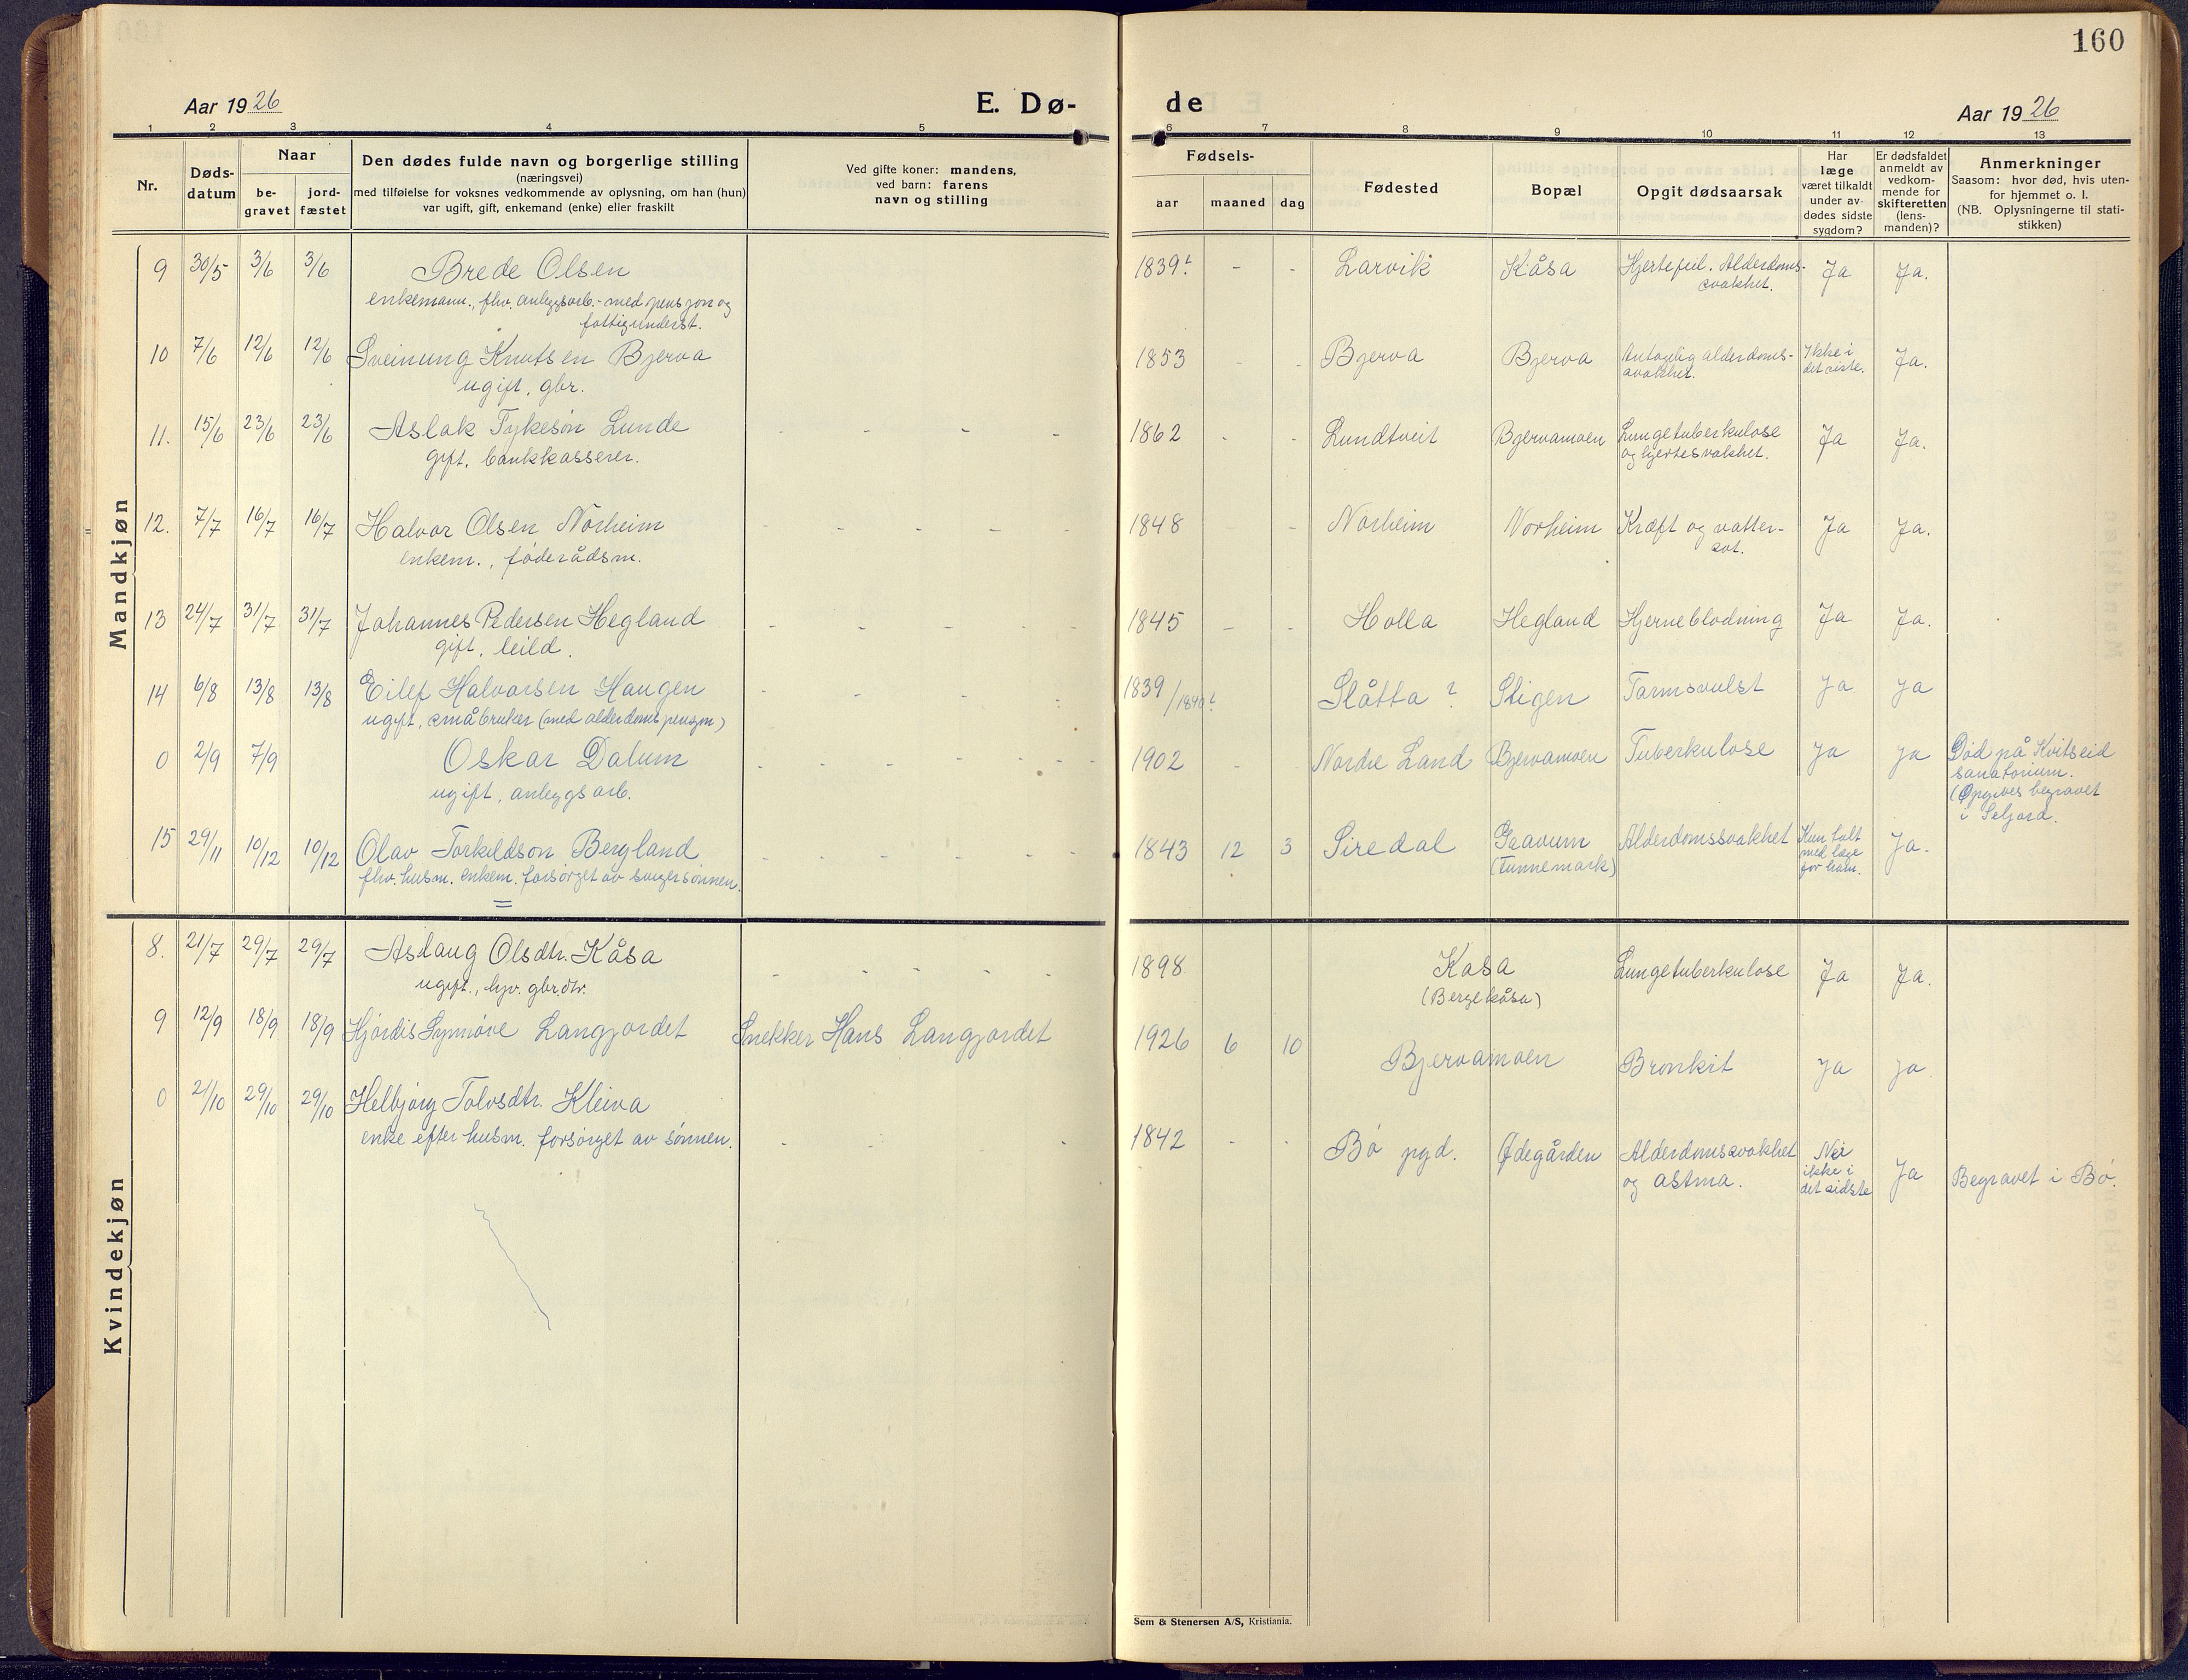 160
Aar 1926
E. Dø-
de
Aar 1926
1 2 3 4 5 6 7 8 9 10 11 12 13
Nr.
Døds-
datum
Naar
be-
gravet
jord-
fæstet
Den dødes fulde navn og borgerlige stilling
(næringsvei)
med tilføielse for voksnes vedkommende av oplysning, om han (hun)
var ugift, gift, enkemand (enke) eller fraskilt
Ved gifte koner: mandens,
ved barn: farens
navn og stilling
Fødsels-
aar maaned dag
Fødested
Bopæl
Opgit dødsaarsak
Har
læge
været tilkaldt
under av-
dødes sidste
sygdom?
Er dødsfaldet
anmeldt av
vedkom-
mende for
skifteretten
(lens-
manden)?
Anmerkninger
Saasom: hvor død, hvis uten-
for hjemmet o. l.
(NB. Oplysningerne til stati-
stikken)
Mandkjøn
9 30/5 3/6 3/6 Brede Olsen 1839? - - Larvik Kåsa Hjertefeil. Alderdoms- Ja Ja.
enkemann., fhv. anleggsarb. - med pensjon og svakhet.
fattigunderst.
10 7/6 12/6 12/6 Sveinung Knutsen Bjerva 1853 - - Bjerva Bjerva Antagelig alderdoms- Ikke i Ja.
ugift, gbr. svakhet. det siste.
11. 15/6 23/6 23/6 Aslak Tykesøn Lunde - - - - 1862 - - Lundtveit Bjervamoen Lungetuberkulose Ja Ja.
gift, bankkasserer. og hjertesvakhet.
12. 7/7 16/7 16/7 Halvor Olsen Norheim - - - - - 1848 - Norheim Norheim Kræft og vatter- Ja Ja.
enkem., føderådsm. sot.
13 24/7 31/7 31/7 Johannes Pedersen Hegland - - - - - 1845 - - Holla Hegland Hjerneblødning Ja Ja.
gift, leild.
14 6/8 13/8 13/8 Eilef Halvorsen Haugen - - - - 1839/1840? Slåtta? Stigen Tarmsvulst Ja Ja
ugift, småbruker (med alderdomspensjon)
0 2/9 7/9 Oskar Dalum - - - - - - 1902 - Nordre Land Bjervamoen Tuberkulose Ja Ja Død på Kvitseid
ugift, anleggsarb. sanatorium.
(Opgives begravet
i Seljord.
15 29/11 10/12 10/12 Olav Torkildson Bergland. - - - - - 1843 12 3 Siredal Gaavum Alderdomssvakhet Kun talt Ja.
fhv. husm. enkem. forsørget av svigersønnen. (Tunnemark) med læge
for ham.
Kvindekjøn
8. 21/7 29/7 29/7 Aslaug Olsdtr. Kåsa - - - - - 1898 Kasa Lungetuberkulose Ja Ja.
ugift., hjv. gbr.dtr. (Bergekåsa)
9 12/9 18/9 18/9 Hjørdis Synnøve Langjordet Snekker Hans Langjordet 1926 6 10 Bjervamoen Bronkit Ja Ja
0 21/10 29/10 29/10 Helbjørg Tolvsdtr. Kleiva 1842 - - Bø pgd. Ødegården Alderdomssvakhet Nei Ja Begravet i Bø.
enke efter husm. forsørget av sønnen. - - - og astma. ikke i
det sidste
Sem & Stenersen A/S, Kristiania.